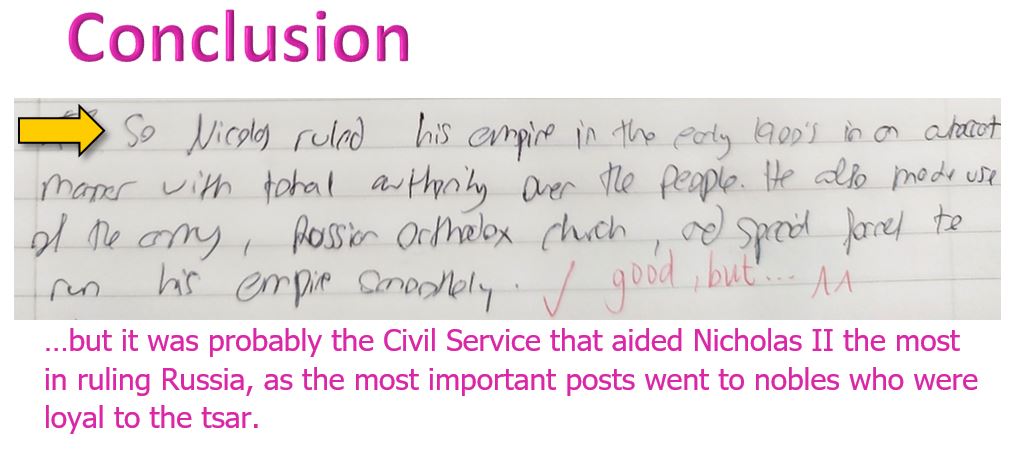 Conclusion
So Nicolas ruled his empire in the early 1900's in an
maner with total authority over the people. He also made use
of the army, Russian Orthelox church, and special forces to
run his empire smoothely. ✓ good, but... ^^
...but it was probably the Civil Service that aided Nicholas II the most
in ruling Russia, as the most important posts went to nobles who were
loyal to the tsar.